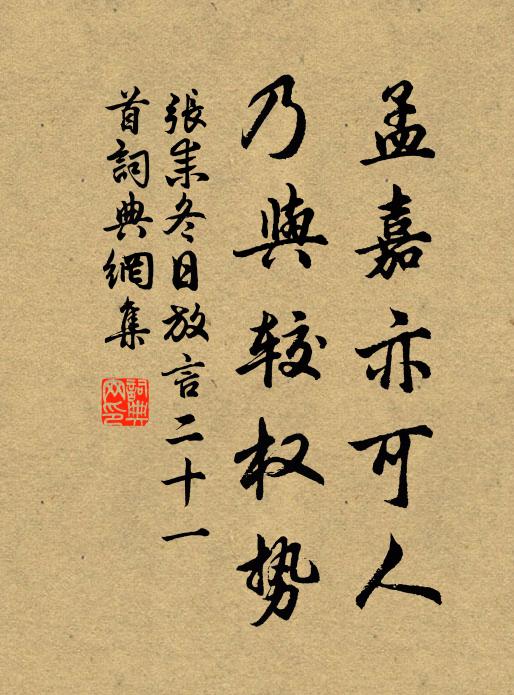 孟嘉亦可人
乃與较权势
張耒冬日放言二十一
首詞典網集
詞典
网印